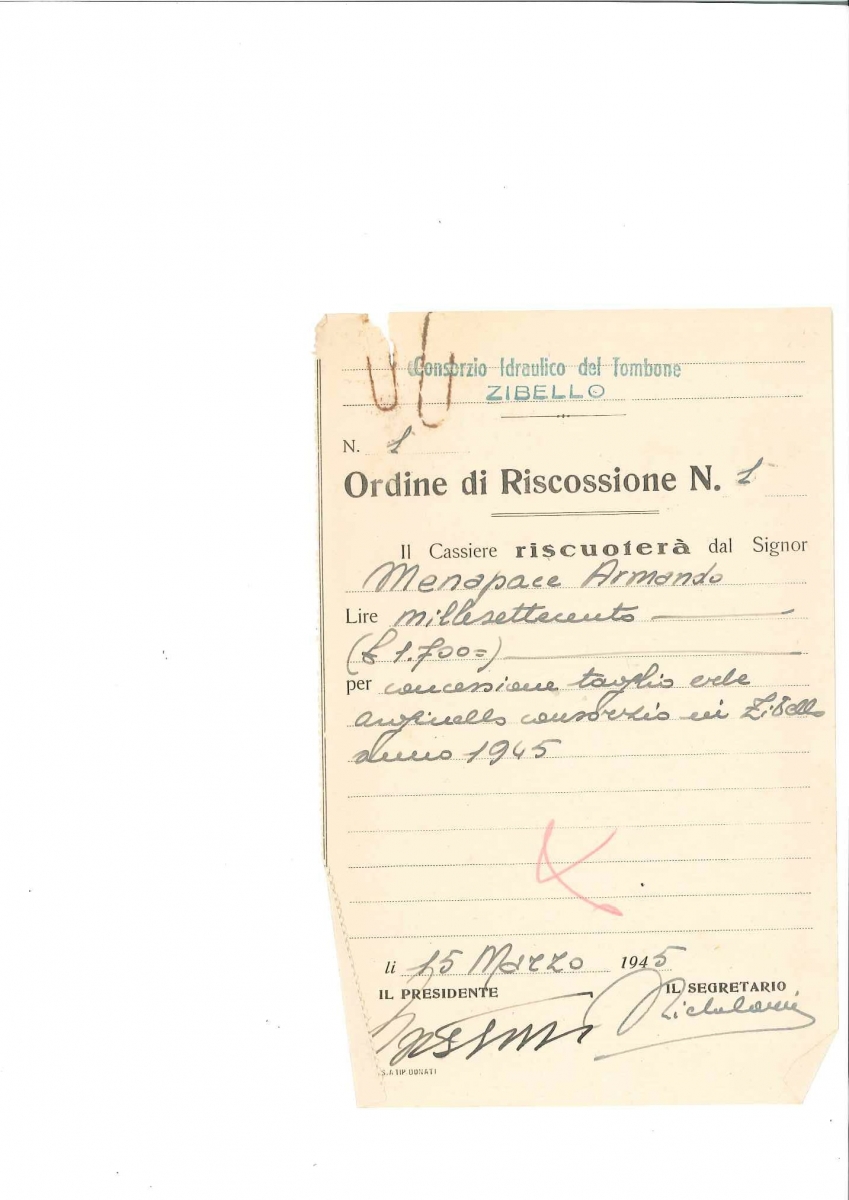 Consorzio Idraulico del Tombone
ZIBELLO
N. 1
Ordine di Riscossione N. 1
Il Cassiere riscuoterà dal Signor
Menapace Armando
Lire millesettecento
(£ 1.700=)
per concessione taglio erbe
arginello consorzio in Zibello
anno 1945
li 15 Marzo 1945
IL PRESIDENTE
IL SEGRETARIO
S.A TIP. DONATI